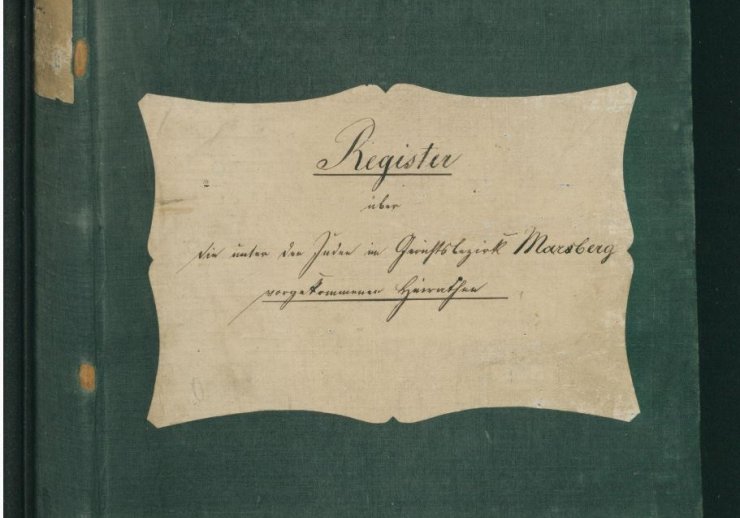 Register
über
die unter den Juden im Gerichtsbezirk Marsberg
vorgekommenen Heirathen